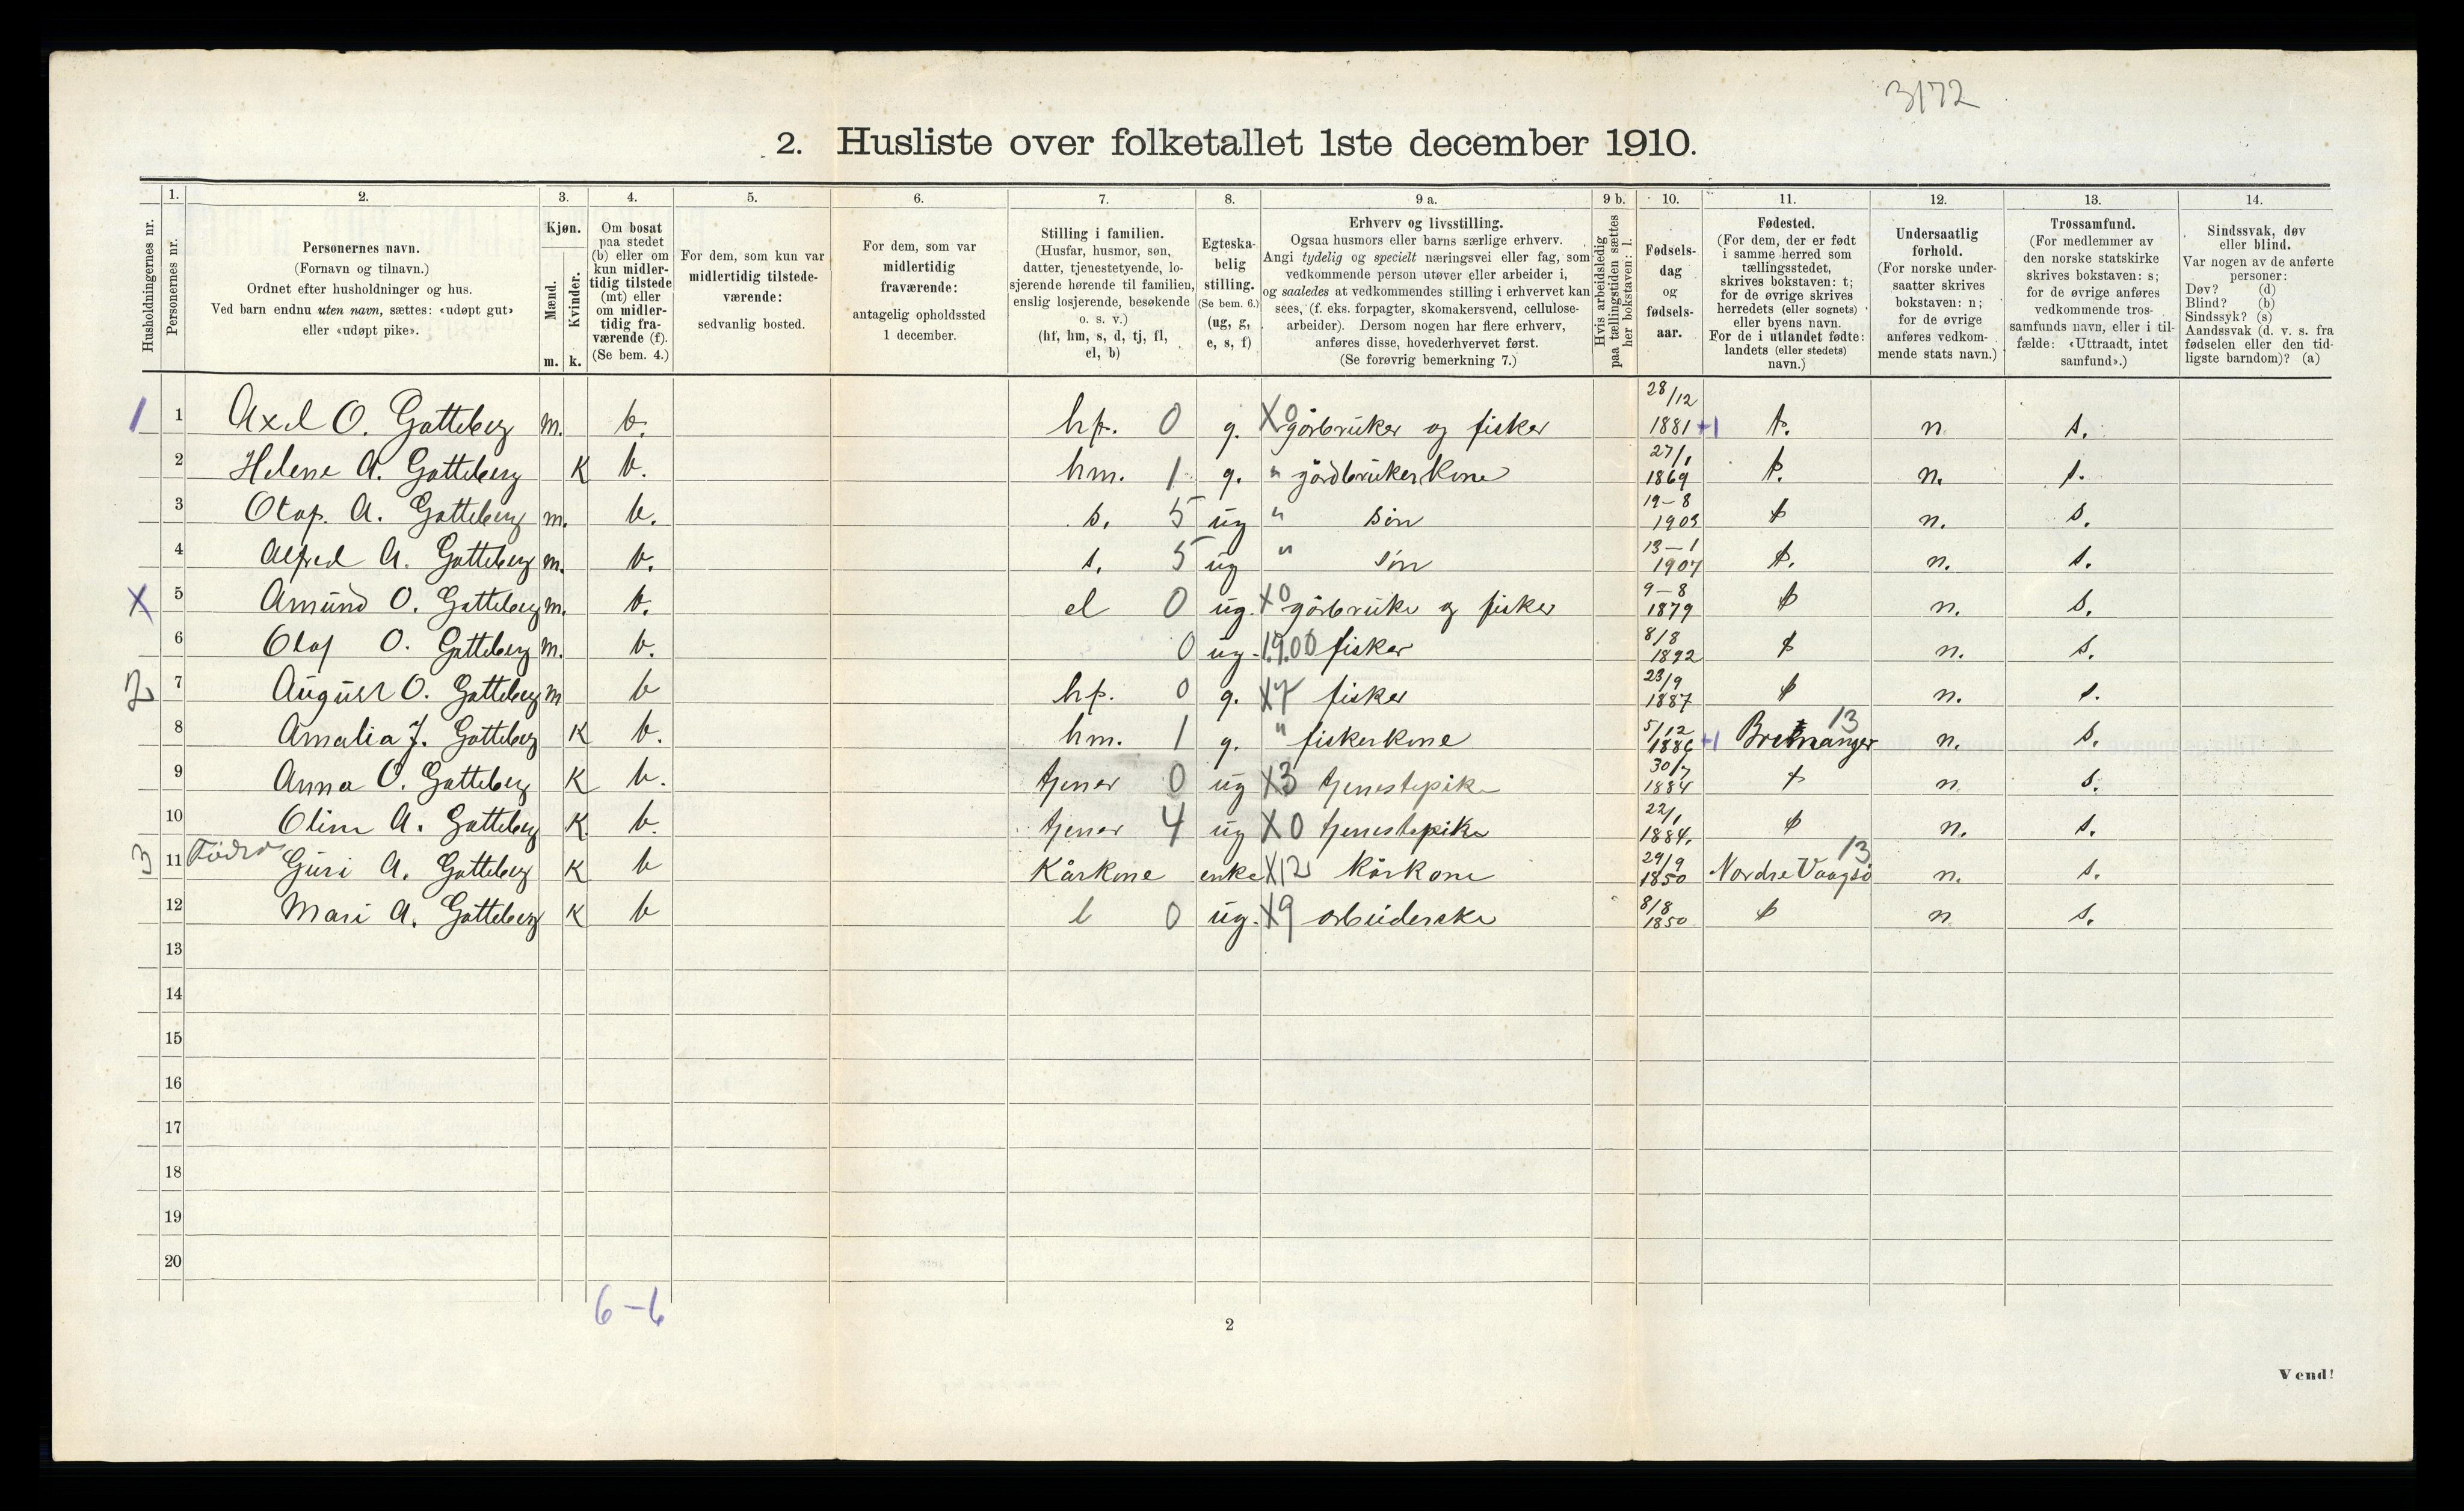 3172
2. Husliste over folketallet 1ste december 1910.
Husholdningernes nr.
1. Personernes nr.
2. Personernes navn. (Fornavn og tilnavn.) Ordnet efter husholdninger og hus. Ved barn endnu uten navn, sættes: «udøpt gut» eller «udøpt pike».
3. Kjøn. Mænd. m. Kvinder. k.
4. Om bosat paa stedet (b) eller om kun midlertidig tilstede (mt) eller om midlertidig fraværende (f). (Se bem. 4.)
5. For dem, som kun var midlertidig tilstedeværende: sedvanlig bosted.
6. For dem, som var midlertidig fraværende: antagelig opholdssted 1 december.
7. Stilling i familien. (Husfar, husmor, søn, datter, tjenestetyende, losjerende hørende til familien, enslig losjerende, besøkende o. s. v.) (hf, hm, s, d, tj, fl, el, b)
8. Egteskabelig stilling. (Se bem. 6.) (ug, g, e, s, f)
9 a. Erhverv og livsstilling. Ogsaa husmors eller barns særlige erhverv. Angi tydelig og specielt næringsvei eller fag, som vedkommende person utøver eller arbeider i, og saaledes at vedkommendes stilling i erhvervet kan sees, (f. eks. forpagter, skomakersvend, cellulosearbeider). Dersom nogen har flere erhverv, anføres disse, hovederhvervet først. (Se forøvrig bemerkning 7.)
9 b. Hvis arbeidsledig paa tællingstiden sættes her bokstaven: l.
10. Fødselsdag og fødselsaar.
11. Fødested. (For dem, der er født i samme herred som tællingsstedet, skrives bokstaven: t; for de øvrige skrives herredets (eller sognets) eller byens navn. For de i utlandet fødte: landets (eller stedets) navn.)
12. Undersaatlig forhold. (For norske undersaatter skrives bokstaven: n; for de øvrige anføres vedkommende stats navn.)
13. Trossamfund. (For medlemmer av den norske statskirke skrives bokstaven: s; for de øvrige anføres vedkommende trossamfunds navn, eller i tilfælde: «Uttraadt, intet samfund».)
14. Sindssvak, døv eller blind. Var nogen av de anførte personer: Døv? (d) Blind? (b) Sindssyk? (s) Aandssvak (d. v. s. fra fødselen eller den tidligste barndom)? (a)
1 1 Axel O. Gotteberg m. b. hf. 0 g. X0 gårbruker og fisker 28/12 1881 +1 t. n s.
2 Helene A. Gotteberg K b. hm. 1 g. " gårdbrukerkone 27/1 1869 t. n. s.
3 Olaf. A. Gotteberg m. b. s. 5 ug " sön 19-8 1903 t n. s.
4 Alfred A. Gotteberg m. b. s. 5 ug " sön 13-1 1907 t. n. s.
X 5 Amund O. Gotteberg m. b. el 0 ug. X0 gårbruke og fisker 9-8 1879 t n. s.
6 Olaf O. Gotteberg m. b. 0 ug. 1.9.00 fisker 8/8 1892 t n. s.
2 7 August O. Gotteberg m b hf. 0 g. X7 fisker 23/9 1887 t n. s.
8 Amalia J. Gotteberg K b. hm. 1 g. " fiskerkone 5/12 1886 +1 Bremanger 13 n. s.
9 Anna O. Gotteberg K b. tjener 0 ug X3 tjenestepike 30/7 1884 t n s.
10 Oline A. Gotteberg K b. tjener 4 ug X0 tjenestepike 22/1 1884. t n. s.
3 11 Födra Guri A. Gotteberg K b Kårkone enke X12 kårkone 29/9 1850 Nordre Vaagsö 13 n. s.
12 Mari A. Gotteberg K b l 0 ug. X9 arbeiderske 8/8 1850 t n s.
13
14
15
16
17
18
19
20
6-6
2
Vend!